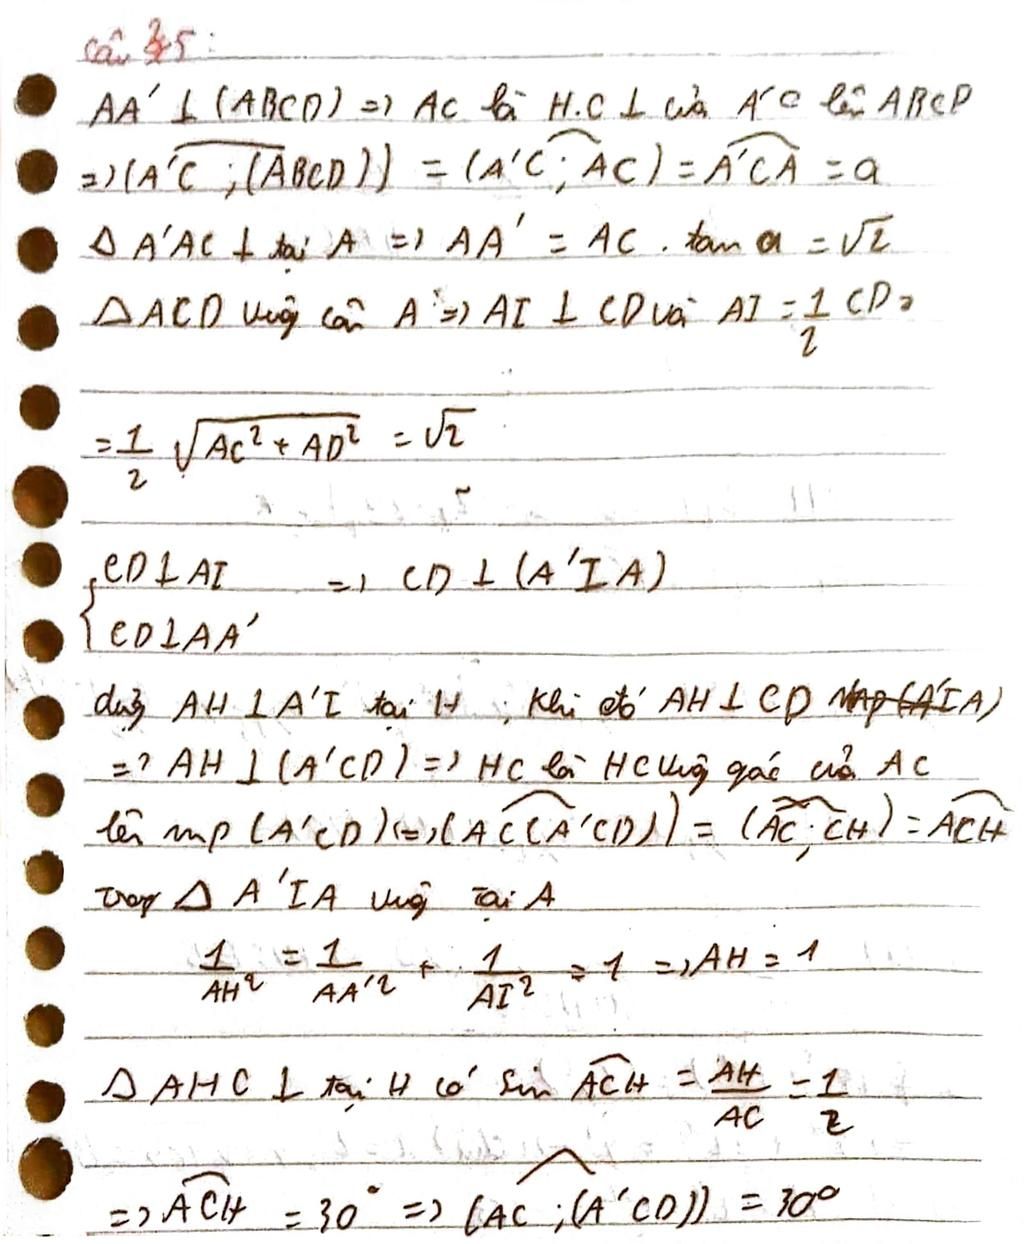 Câu 35:
AA' ⊥ (ABCD) => AC là H.C ⊥ của A'C lên ABCD
=> (A'C ; (ABCD)) = (A'C ; AC) = A'CA = a
Δ A'AC ⊥ tại A => AA' = AC . tan a = √2
Δ ACD vug cân A => AI ⊥ CD và AI = 1/2 CD =
= 1/2 √(AC² + AD²) = √2
{ CD ⊥ AI => CD ⊥ (A'IA)
CD ⊥ AA'
dựg AH ⊥ A'I tại H , khi đó AH ⊥ CD
=> AH ⊥ (A'CD) => HC là HC vug góc của AC
lên mp (A'CD) => (AC (A'CD)) = (AC ; CH) = ACH
trog Δ A'IA vug tại A
1/AH² = 1/AA'² + 1/AI² = 1 => AH = 1
Δ AHC ⊥ tại H có sin ACH = AH/AC = 1/2
=> ACH = 30° => (AC ; (A'CD)) = 30°